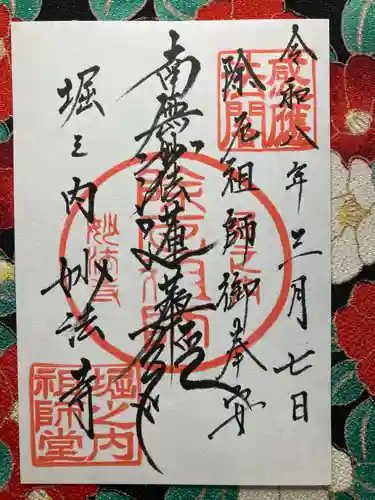 令和八年三月七日
除厄祖師御奉安
南無妙法蓮華経
堀之内妙法寺
感應
除厄祖師
妙法寺
堀之内
祖師堂